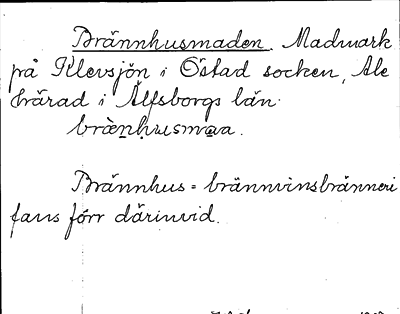 Brännhusmaden. Madmark
på Klevsjön i Östad socken, Ale
härad i Älfsborgs län.
brænhusmaa.
Brännhus = brännvinsbränneri
fans förr därinvid.